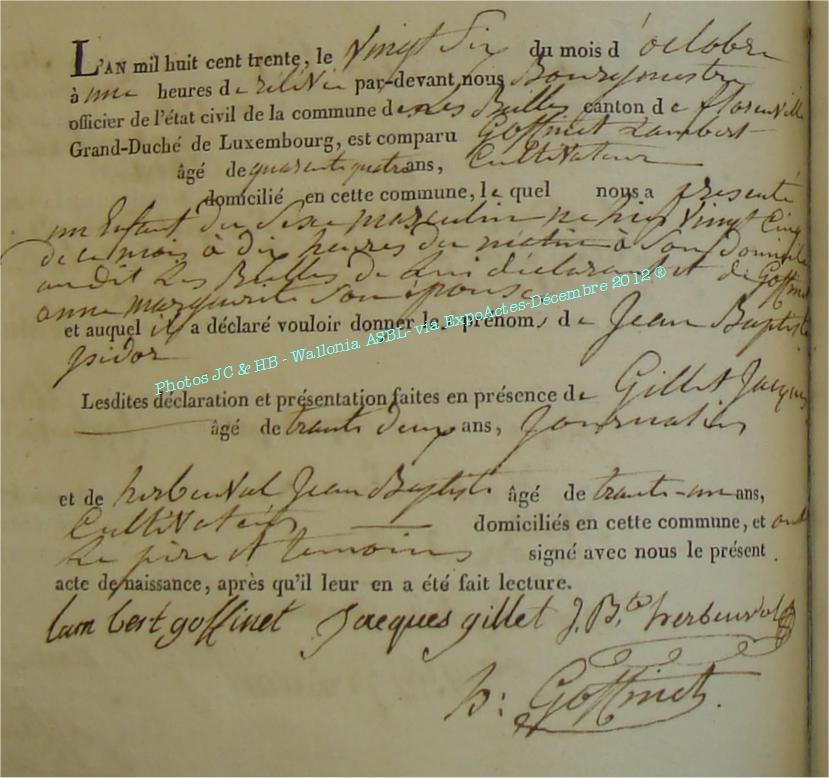 L'AN mil huit cent trente, le vingt Six du mois d'octobre
à une heures de rélevée par-devant nous Bourgmestre
officier de l'état civil de la commune des Bulles canton de florenville
Grand-Duché de Luxembourg, est comparu Goffinet Lambert
âgé de quarante quatre ans, Cultivateur
domicilié en cette commune, le quel nous a présenté
un Enfant du Sexe masculin né hier vingt Cinq
de ce mois à dix heures du matin à Son domicile
audit Les Bulles de lui déclarant et de Goffinet
anne marguerite Son épouse
et auquel il a déclaré vouloir donner les prénoms de Jean Baptiste
ysidor
Lesdites déclaration et présentation faites en présence de Gillet Jacques
âgé de trante deux ans, Journalier
et de herbeuval Jean Baptiste âgé de trante-un ans,
Cultivateur domiciliés en cette commune, et ont
Le père et temoins signé avec nous le présent
acte de naissance, après qu'il leur en a été fait lecture.
lambert goffinet Jacques gillet J. B.te herbeuval
h: Goffinet.
Photos JC & HB - Wallonia ASBL- via ExpoActes-Décembre 2012 ®